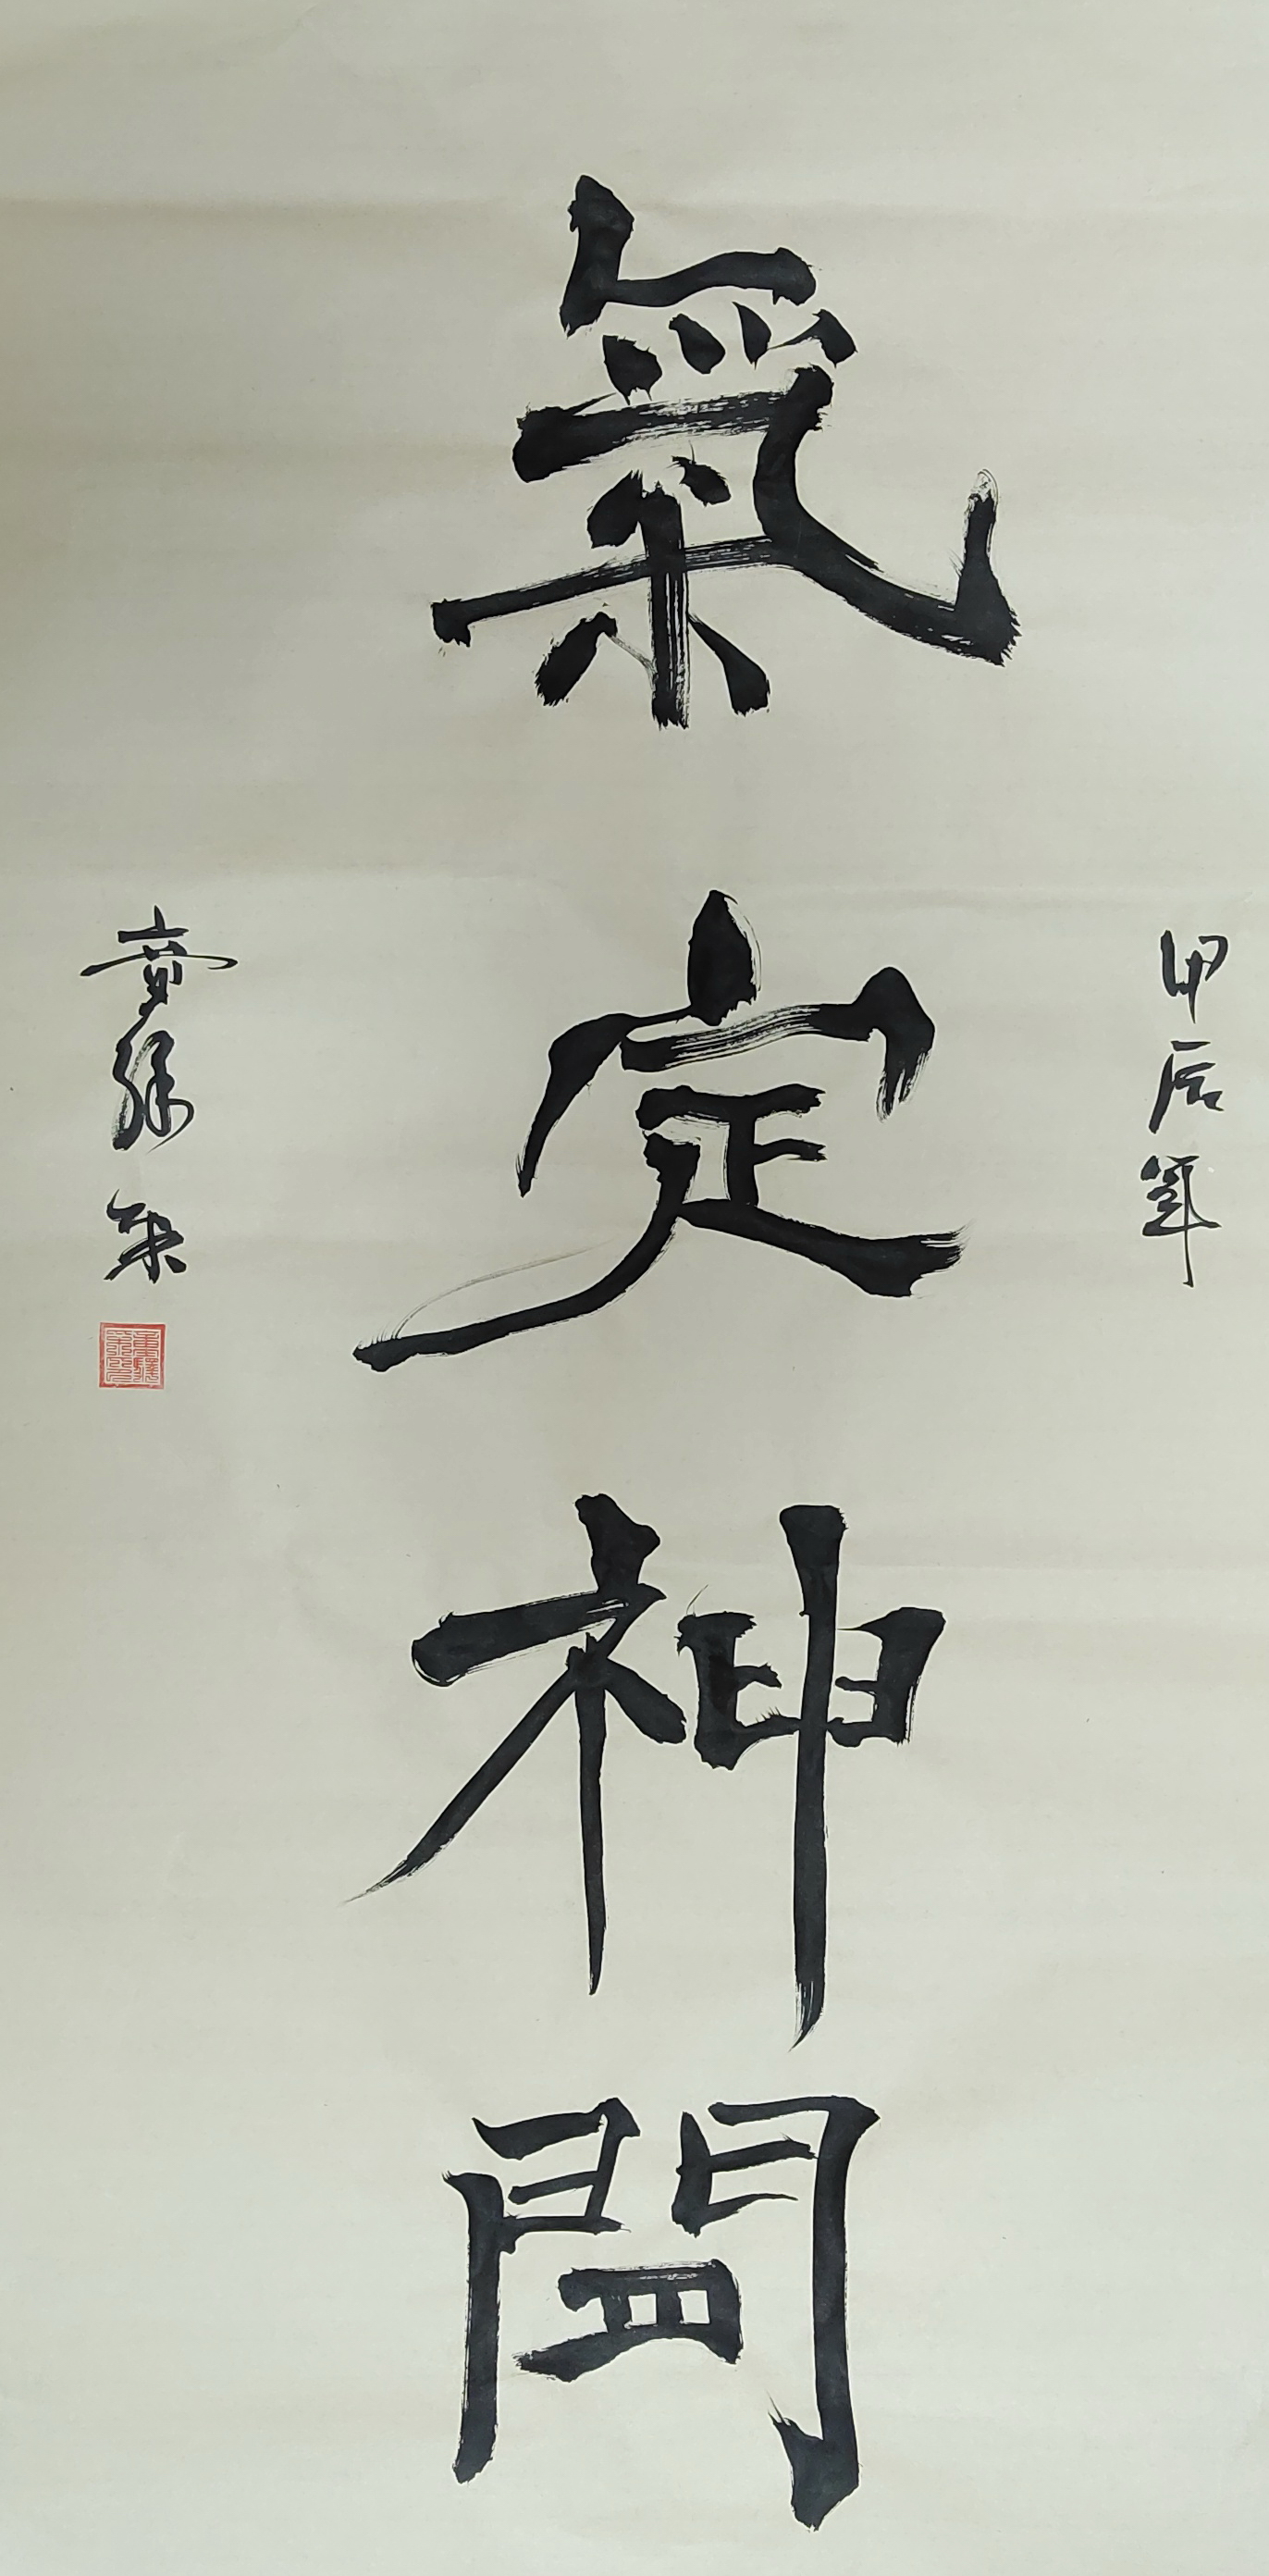 甲辰年
氣定神閒